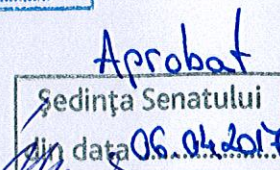 Aprobat
Şedinţa Senatului
din data 06.04.2017